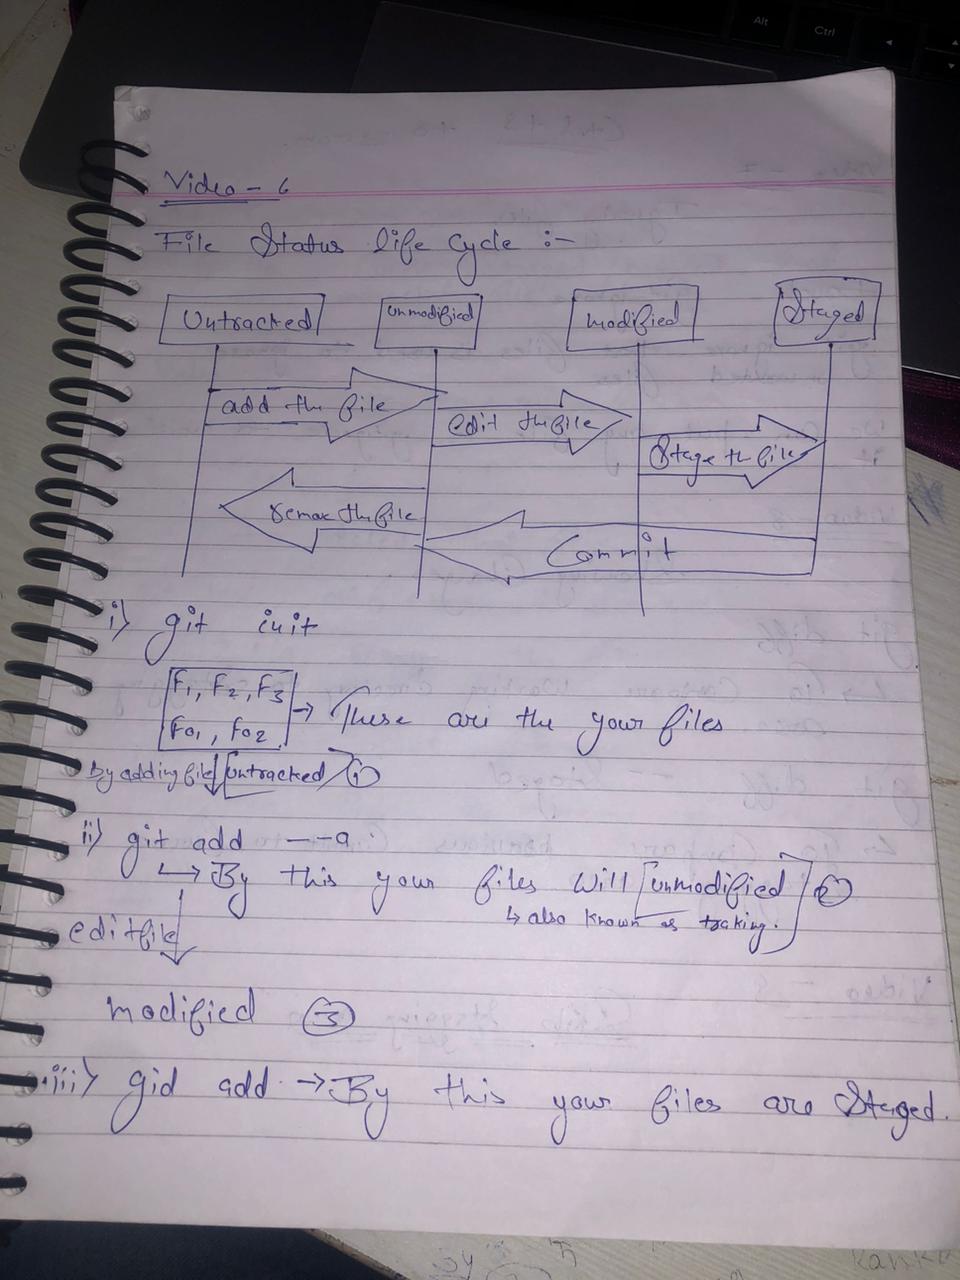 Alt
Ctrl
Video - 6
File Status life cycle :-
Untracked unmodified modified Staged
add the file
edit the file
Stage the file
the file
Commit
i) git init
F1, F2, F3
Fo1, Fo2
→ These are the your files
By adding file untracked 1
ii) git add --a
↳ By this your files will unmodified 2
↳ also known as traking.
edit file
modified 3
iii) gid add → By this your files are Staged.